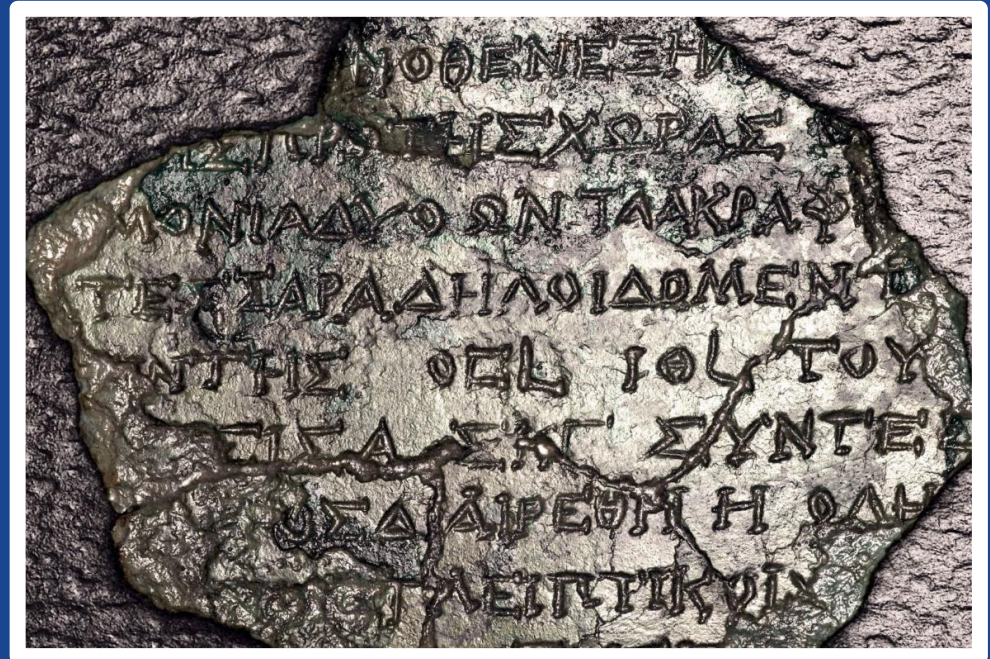 ΝΟΘΕΝΕΞΗΛ
ΤΗΣΧΩΡΑΣ
ΜΟΝΙΑΔΥΟ ΩΝ ΤΑΑΚΡΑΦ
ΤΕΣΣΑΡΑΔΗΛΟΙΔΟΜΕΝ
ΝΤΗΣ ΟΕL ΙΘL ΤΟΥ
ΕΙΣ Α ΣΚΓ ΣΥΝΤΕΣ
ΟΣΔΙΑΙΡΕΘΗ Η ΟΛΗ
ΛΕΙΠΤΙΚΟΙΣ